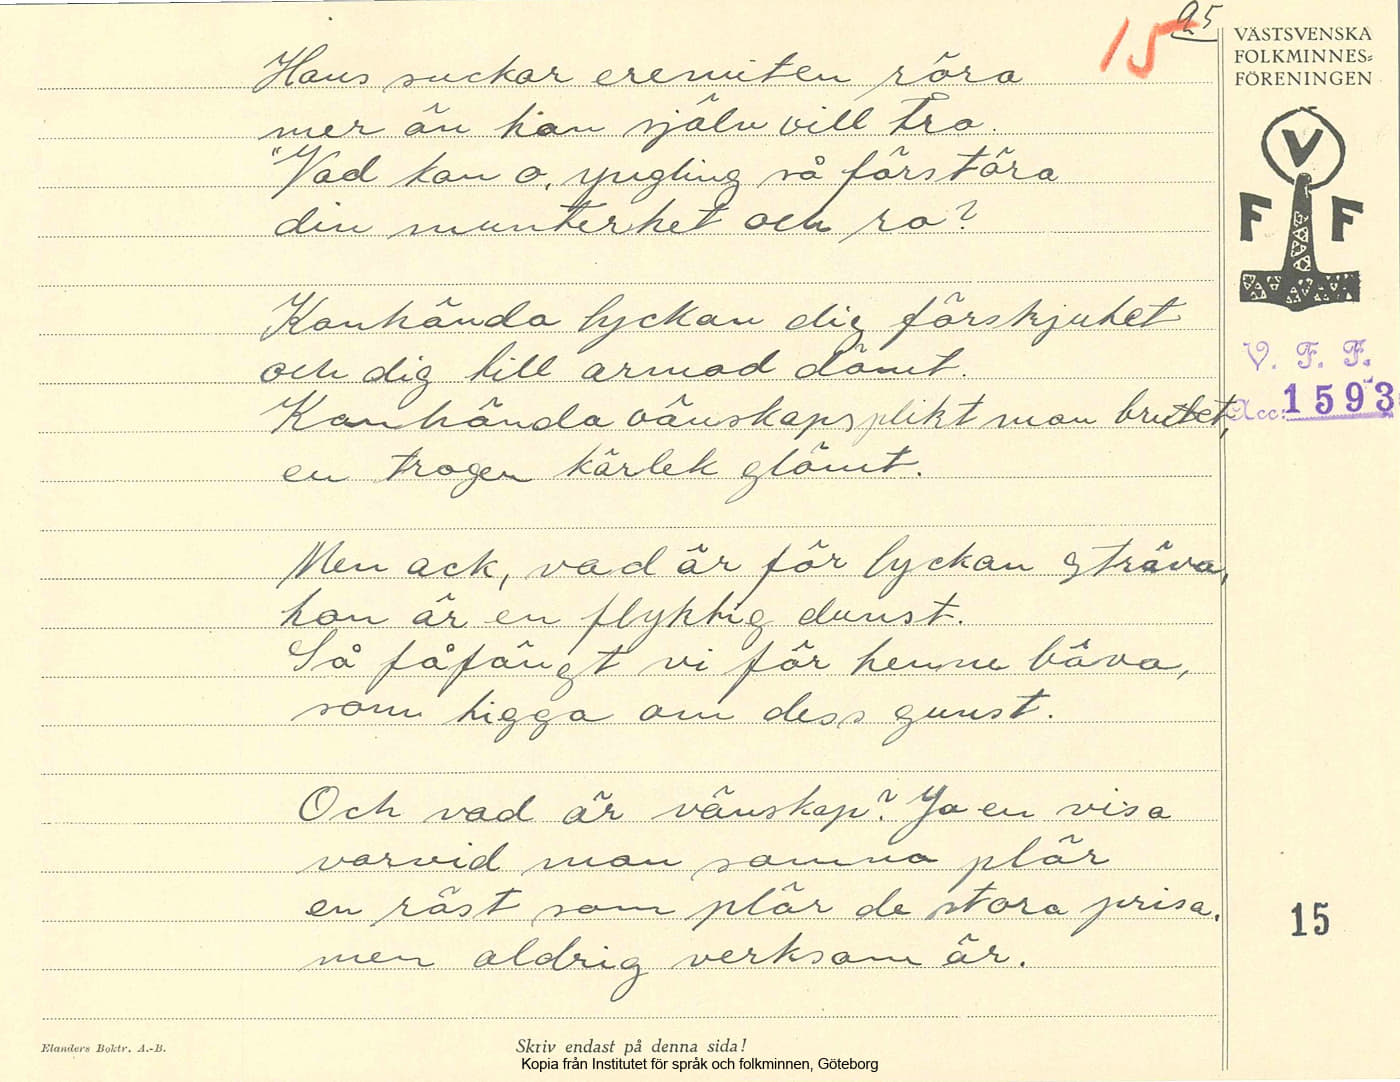 15
95
VÄSTSVENSKA
FOLKMINNES=
FÖRENINGEN
V
F F
V. F. F.
Acc: 1593
Hans suckar eremiten röra
mer än han själv vill tro.
"Vad kan o, yngling så förstöra
din munterhet och ro?
Kanhända lyckan dig förskjutet
och dig till armod dömt.
Kanhända vänskapsplikt man brutet,
en trogen kärlek glömt.
Men ack, vad är för lyckan sträva,
hon är en flyktig dunst.
Så fåfängt vi för henne bäva,
som tigga om dess gunst.
Och vad är vänskap? Jo en visa
varvid man somna plär
en röst som plär de stora prisa.
men aldrig verksam är.
15
Elanders Boktr. A.-B.
Skriv endast på denna sida!
Kopia från Institutet för språk och folkminnen, Göteborg